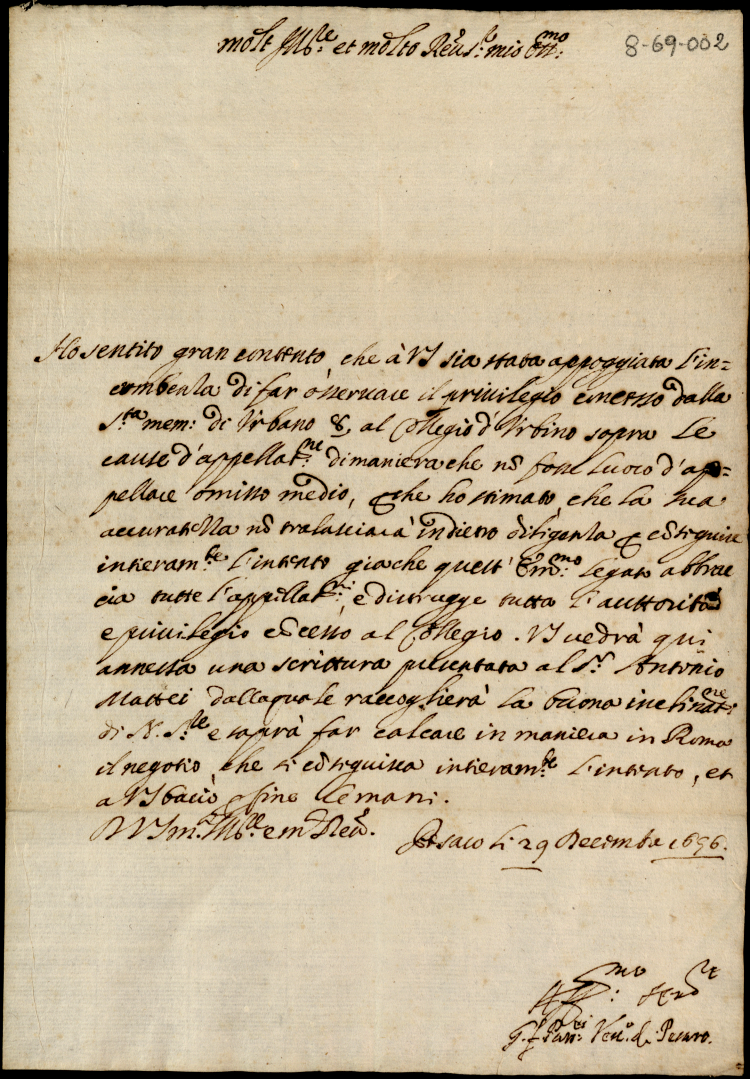 molt Ill.re et molto Reu. S.r mio Oss.mo
8-69-002
Ho sentito gran contento che à VS sia stata appoggiata l'in=
combenza di far osseruare il priuilegio concesso dalla
S.ta mem: di Vrbano 8. al Collegio d'Vrbino sopra le
cause d'appellat.ne di maniera che nõ fosse luoco d'ap=
pellare omisso medio, che ho stimato che la sua
accuratezza nõ tralasciarà indietro diligenza cõseguire
intieram.te l'intento gia che quest' Em.mo Legato abbrac
cia tutte l'appellat.ni, e distrugge tutta l'auttorità
e priuilegio cõcesso al Collegio. VS uedrà qui
annessa una scrittura presentata al S.r Antonio
Mattei dalla quale raccoglierà la buona inclinat.ne
di N. S.re e saprà far calcare in maniera in Roma
il negotio, che si cõseguisca intieram.te l'intento, et
a VS bacio p fine le mani.
D VS m. Ill.re e m. Reu.
Pesaro li 29 Decembre 1656.
Aff.mo Ser.re
G. Fran. Vesc.o di Pesaro.